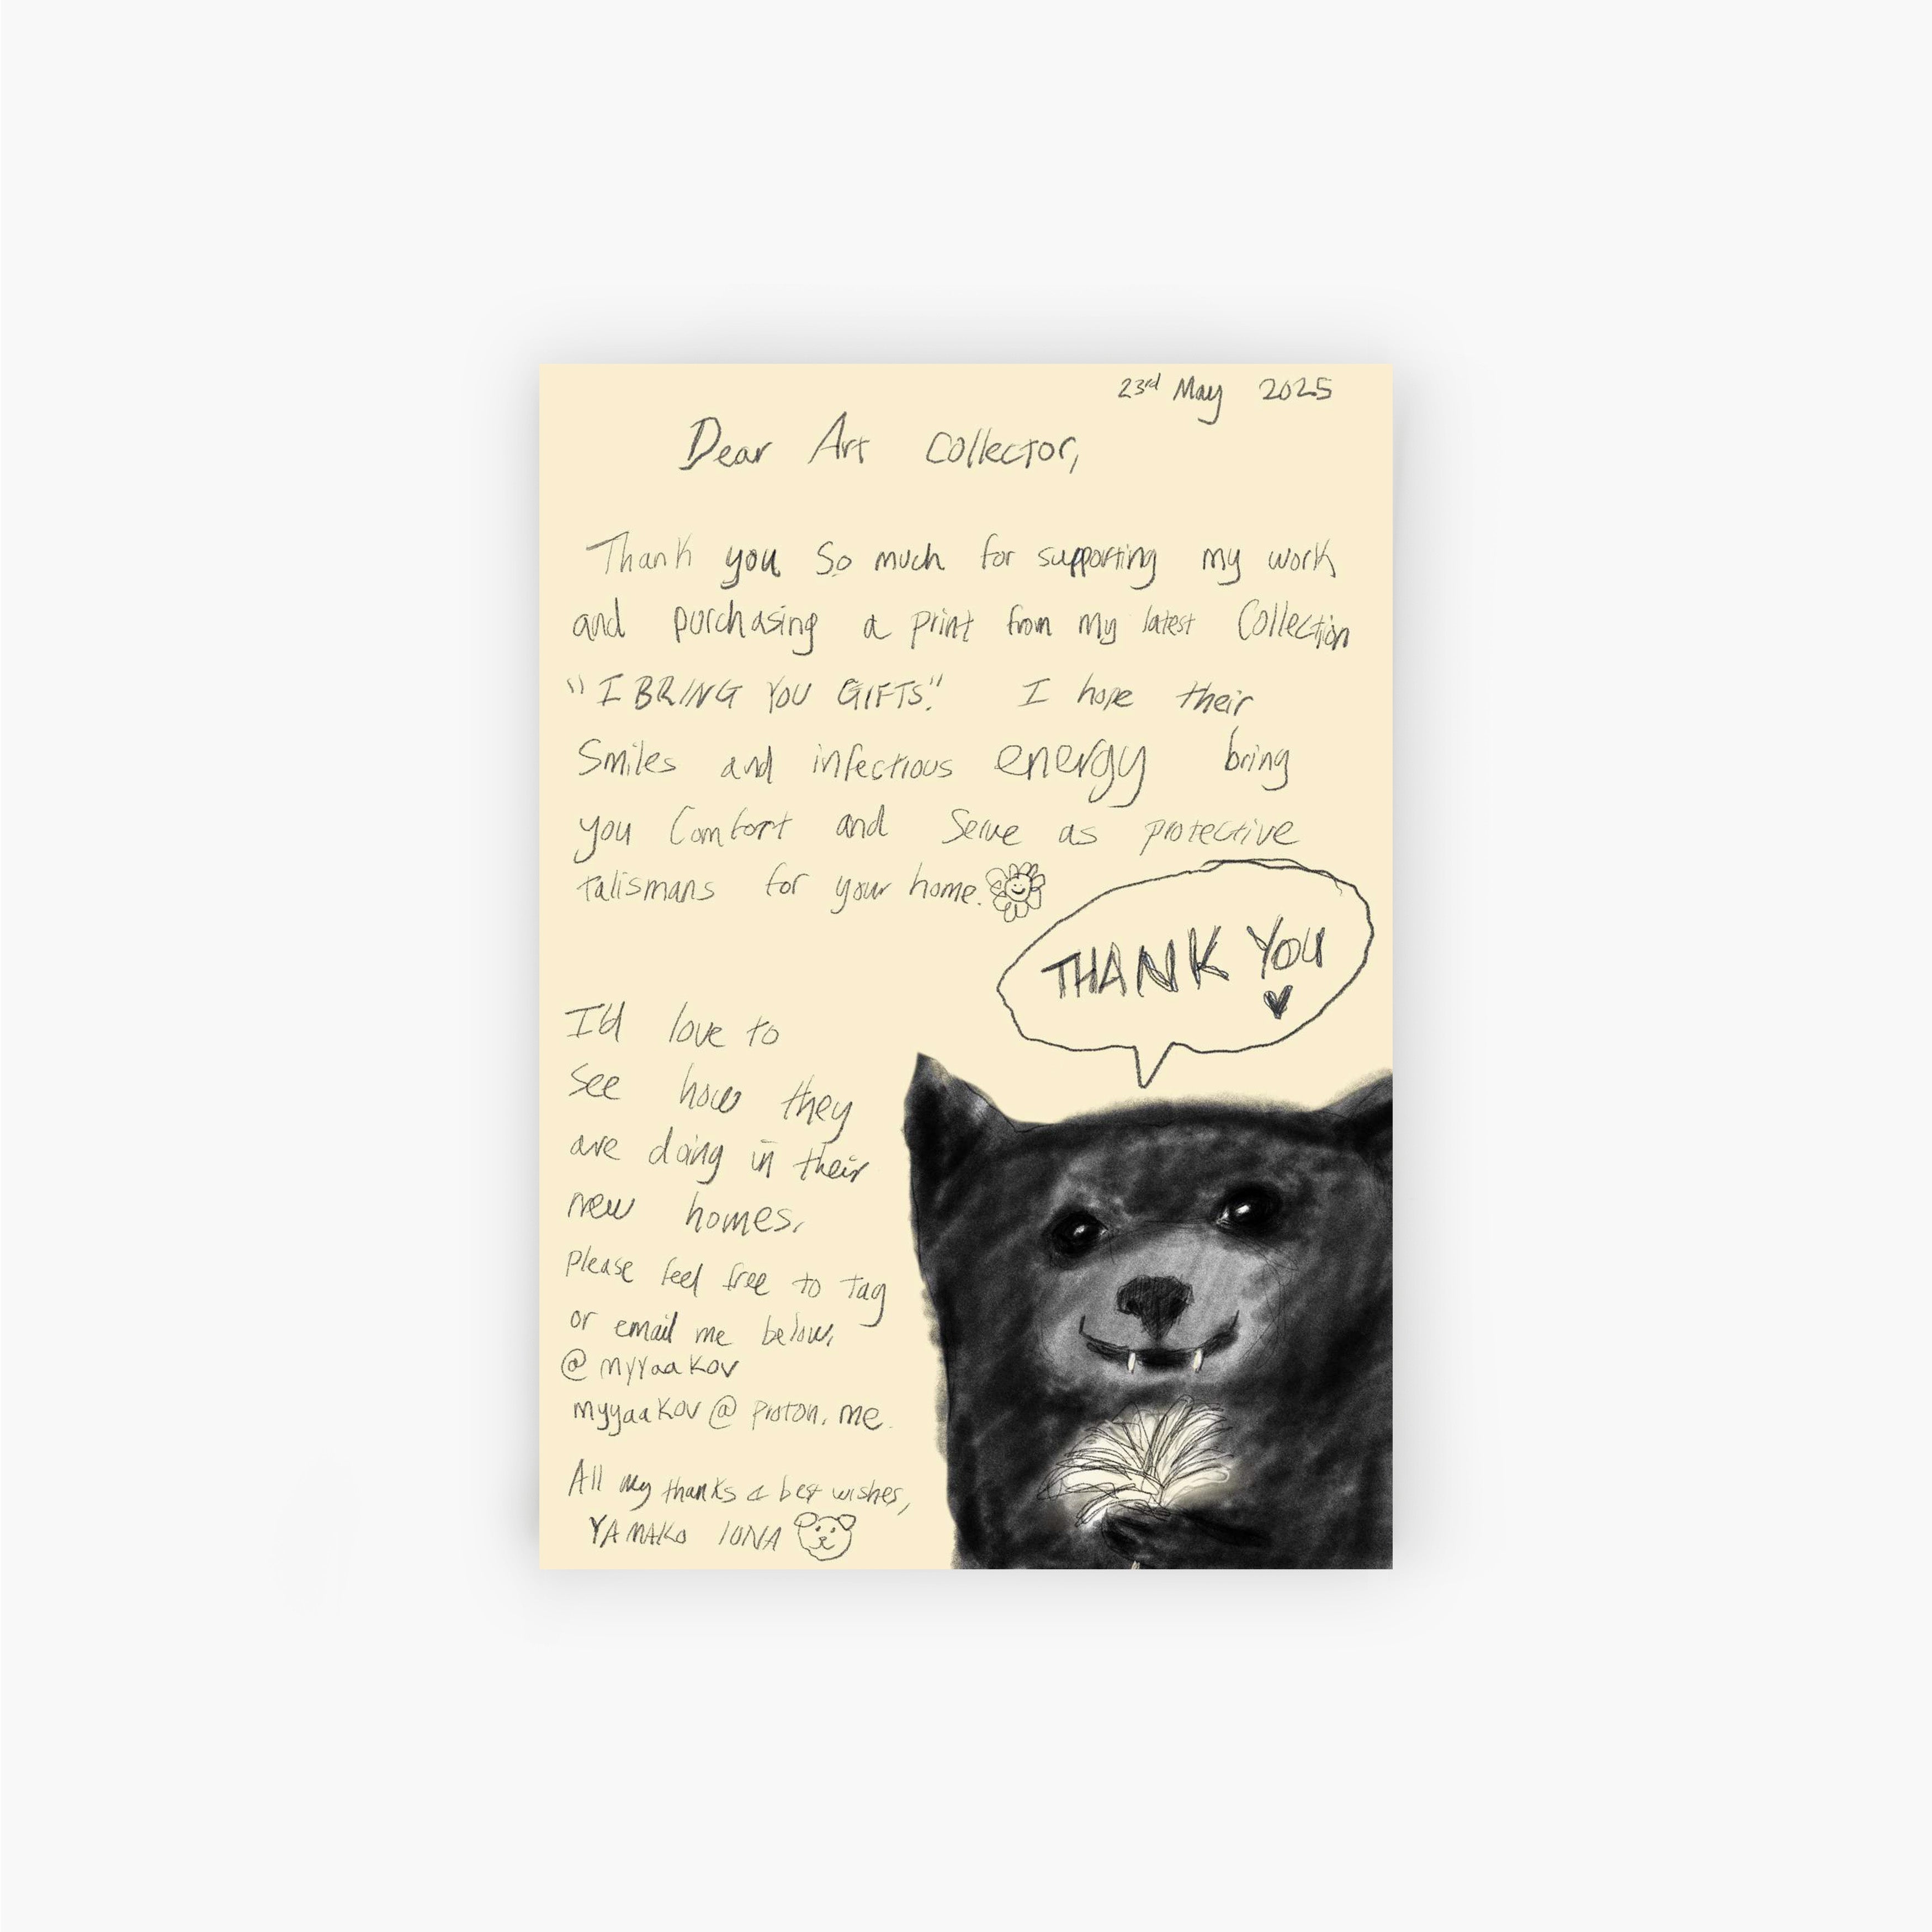 23rd May 2025
Dear Art Collector,
Thank you so much for supporting my work
and purchasing a print from my latest Collection
"I BRING YOU GIFTS". I hope their
Smiles and infectious energy bring
you Comfort and Serve as protective
talismans for your home.
THANK YOU
I'd love to
See how they
are doing in their
new homes.
Please feel free to tag
or email me below.
@myyaakov
myyaakov@proton.me.
All my thanks & best wishes,
YAMAKO IONA